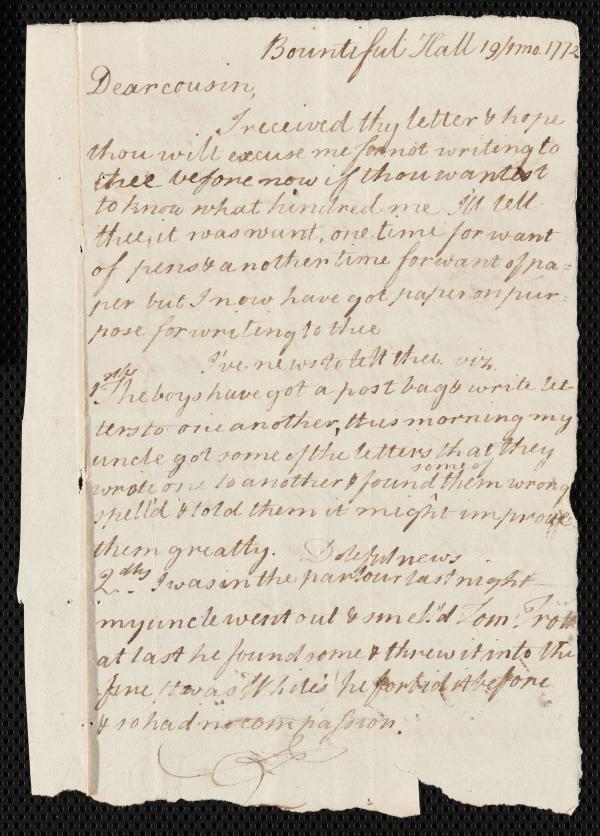 Bountiful Hall 19/1mo. 1772
Dear cousin,
I received thy letter & hope
thou will excuse me for not writing to
thee before now if thou wantest
to know what hindred me I'll tell
thee, it was want, one time for want
of pens & another time for want of pa=
per but I now have got paper on pur=
pose for writing to thee
I've news to tell thee. viz.
1stly
The boys have got a post bag & write let
ters to one another, this morning my
uncle got some of the letters that they
some of
wrote one to another & found them wrong
spell'd & told them it might improve
them greatly. Doleful news
2dly I was in the parlour last night
my uncle went out & smel'd Tom
at last he found some & threw it into the
fire it was White's he forbid it before
& so had no compassion.